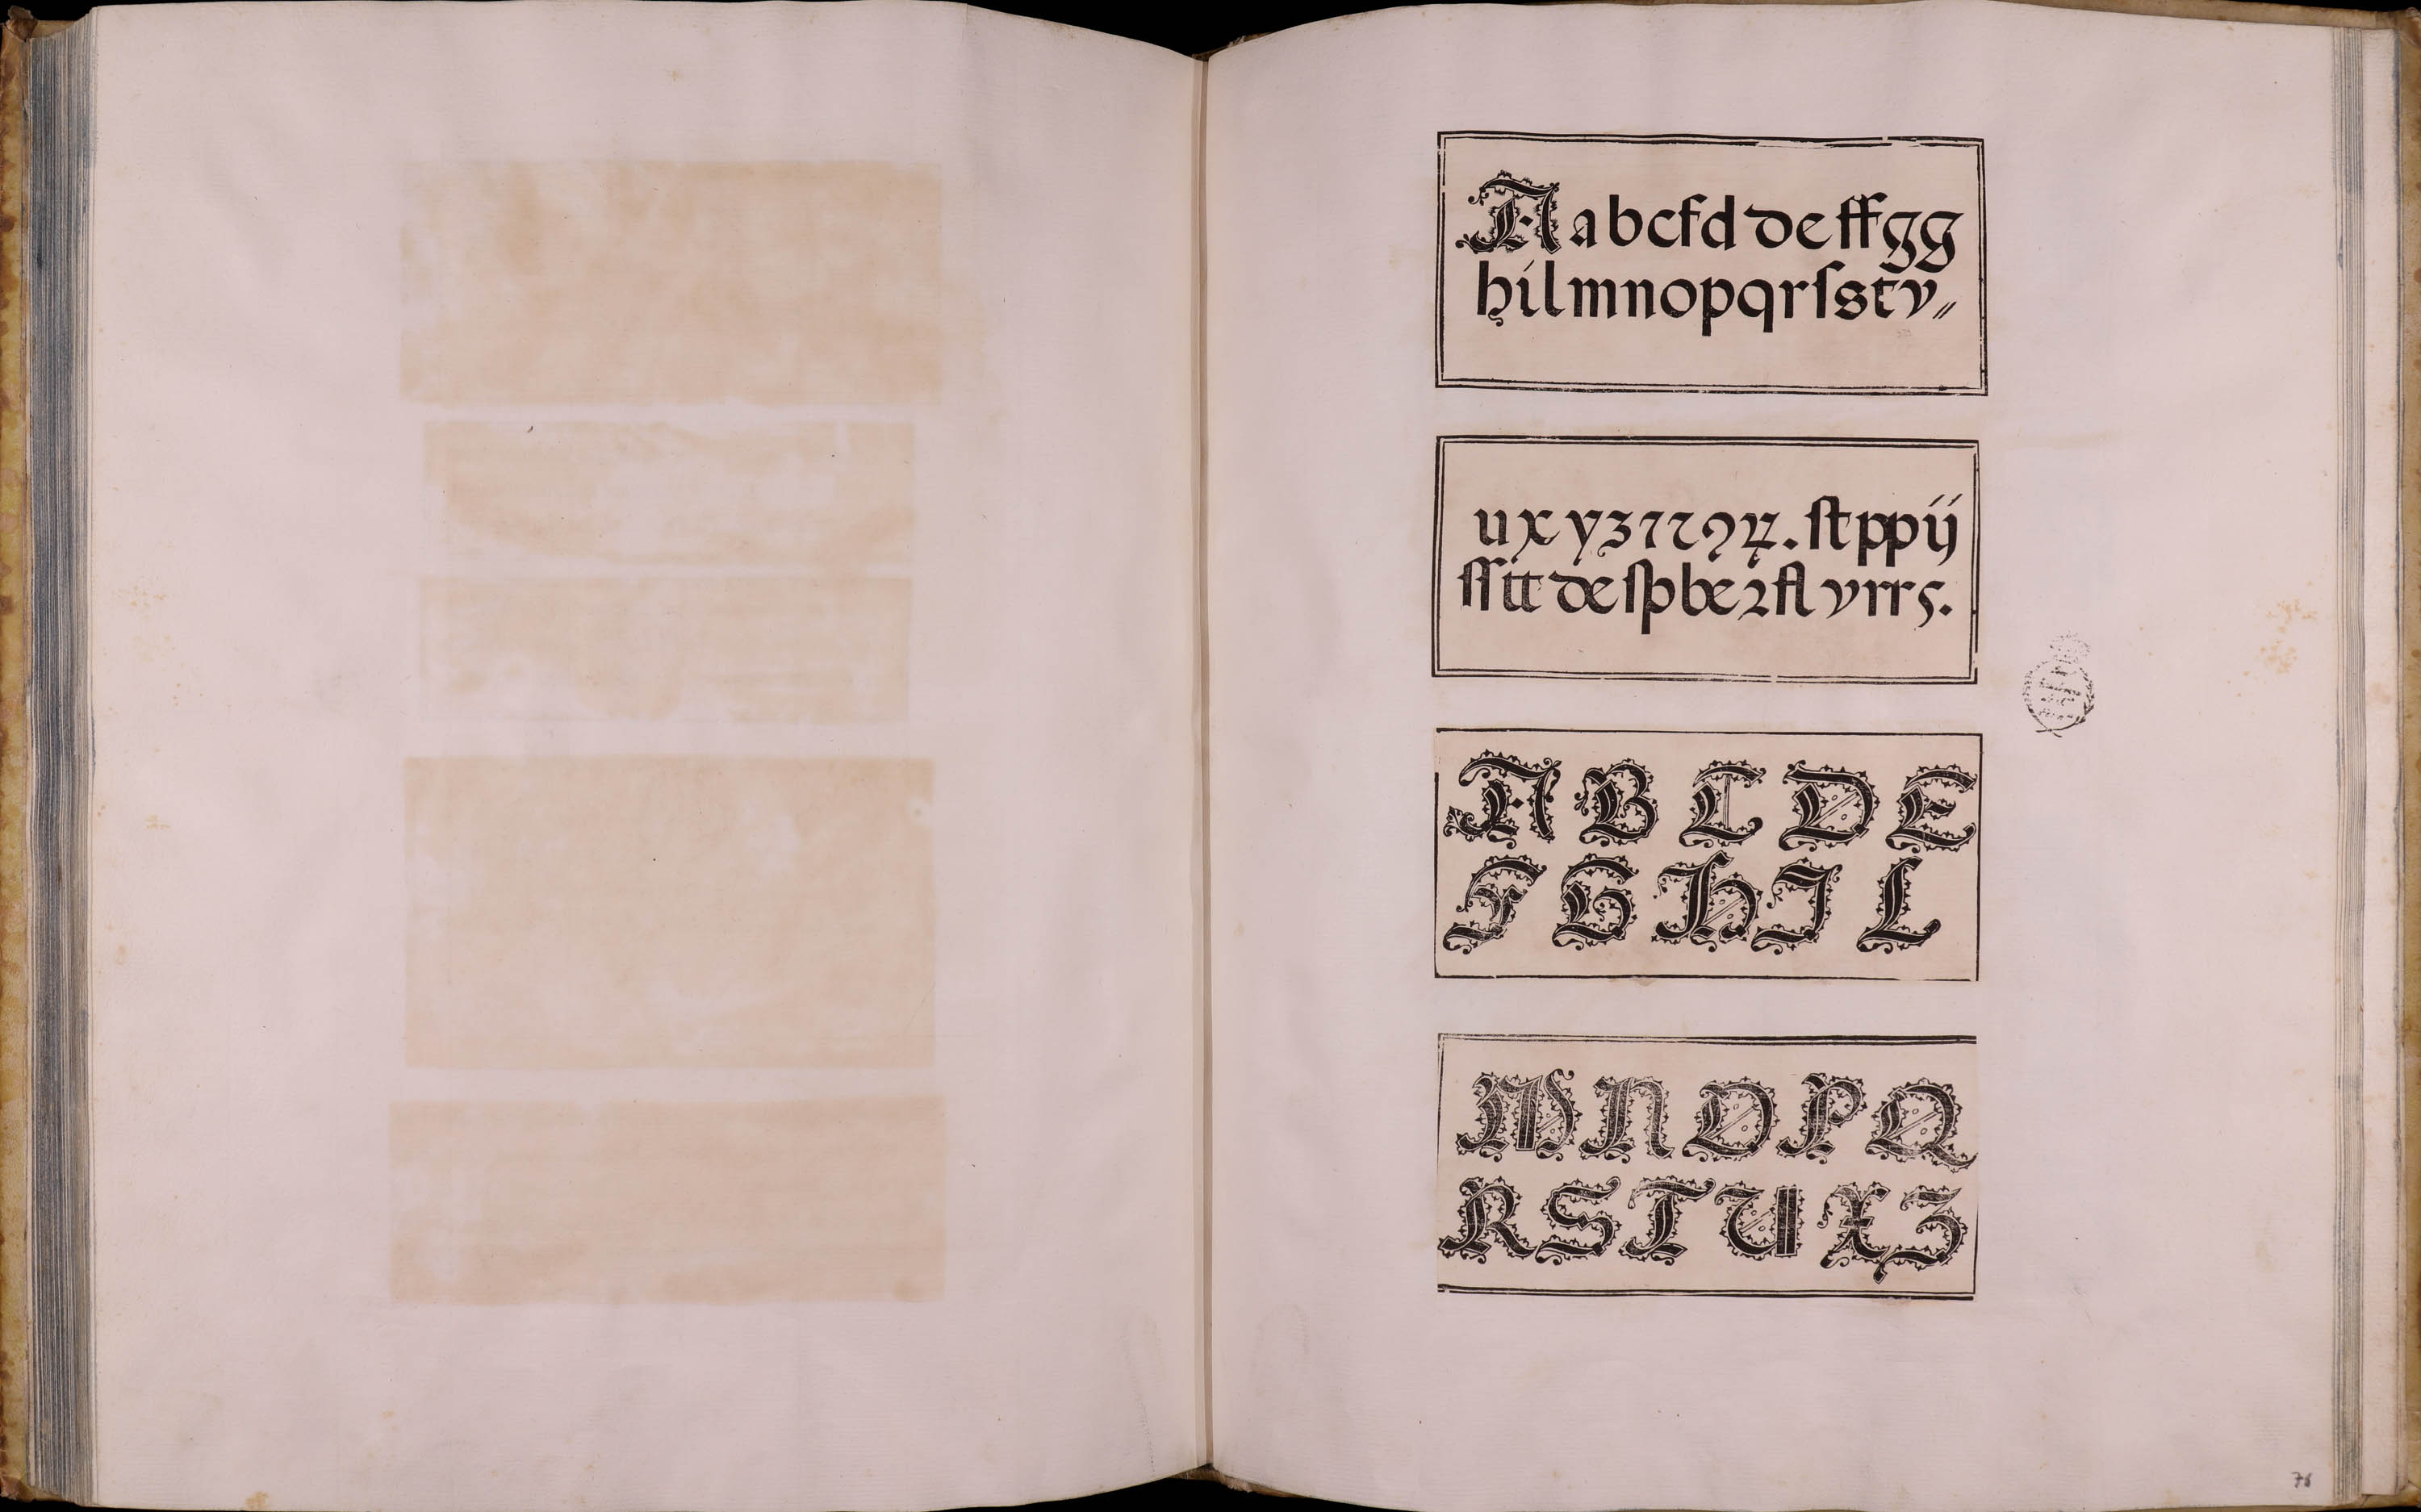 A a b c f d d e ff g g
h i l m n o p q r ſ s t v //
u x y z ⁊ 
ſſ it de ſp be ꝛ fl v r r ς.
A B C D E
F G H I L
M N O P Q
R S T U X Z
76